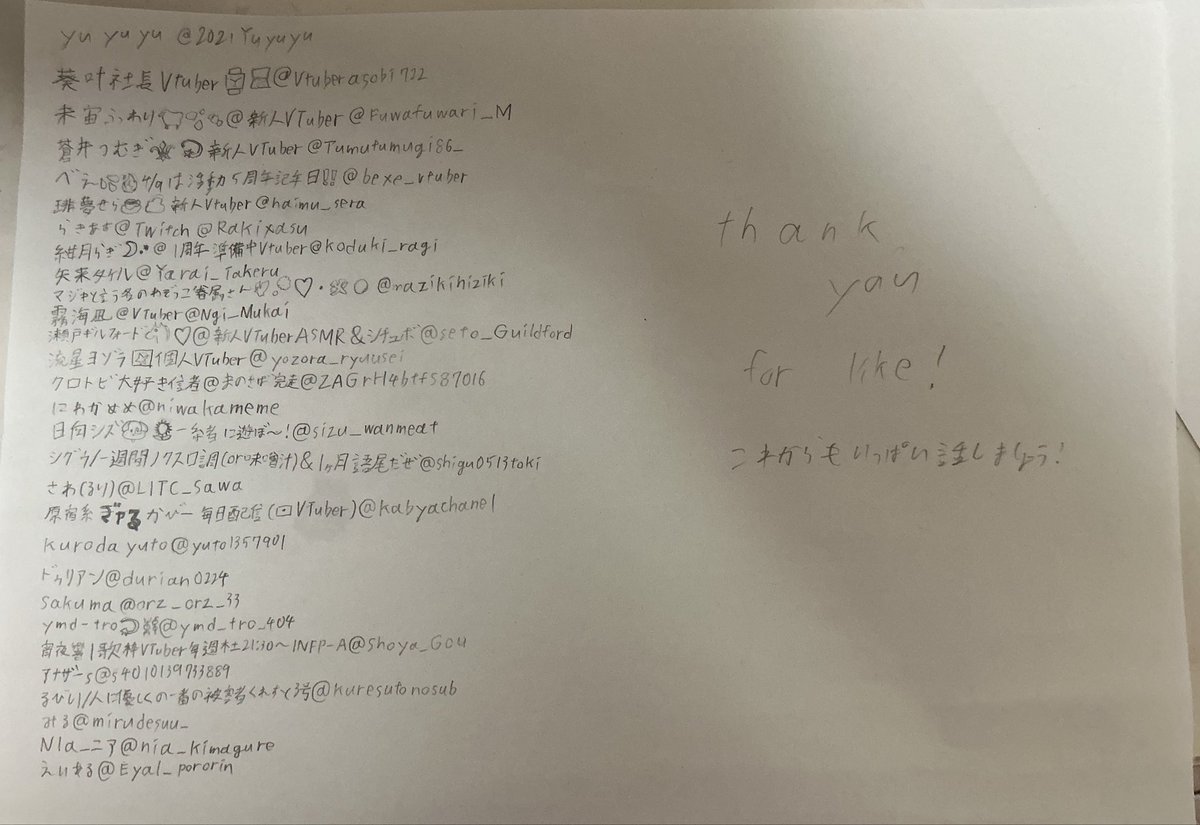 yu yu yu @2021Yuyuyu
葵叶社長Vtuber @Vtuberasobi722
未宙ふわり @新人VTuber @Fuwafuwari_M
蒼井つむぎ 新人VTuber @Tumutumugi86_
べえ 4/9は活動5周年記年日!! @bexe_vtuber
琲夢せら 新人Vtuber @haimu_sera
らきあす@Twitch @Rakixasu
紺月らぎ @1周年準備中Vtuber@koduki_ragi
矢来タケル@Yarai_Takeru
マジキと言う名の 二番属さん ♡・ @razikihiziki
霧海凪@VTuber@Ngi_Mukai
瀬戸ギルフォード ♡@新人VTuberASMR&シチュボ@seto_Guildford
流星ヨゾラ 個人VTuber@yozora_ryuusei
クロトビ大好き信者@まのさば完走@ZAGrH4btfS87016
にわかめめ@niwakameme
日向シズ 一緒に遊ぼ〜!@sizu_wanmeat
シグウノ一週間ノクスロ調(or味噌汁)&1ヶ月語尾だぜ@shigu0513toki
さわ(るり)@LITC_Sawa
原宿系ぎゃるかびー毎日配信( VTuber)@kabyachanel
kuroda yuto@yuto1357901
ドゥリアン@durian0224
Sakuma@orz_orz_33
ymd-tro @ymd_tro_404
宵夜響|歌枠VTuber毎週木土21:30〜INFP-A@Shoya_Gou
アナザーs@s4010139733889
るびい/人に優しくの一番の被害者くれすと3号@kuresutonosub
みる@mirudesuu_
NIa_ニア@nia_kimagure
えいある@Eyal_pororin
thank
you
for like!
これからもいっぱい話しましょう!